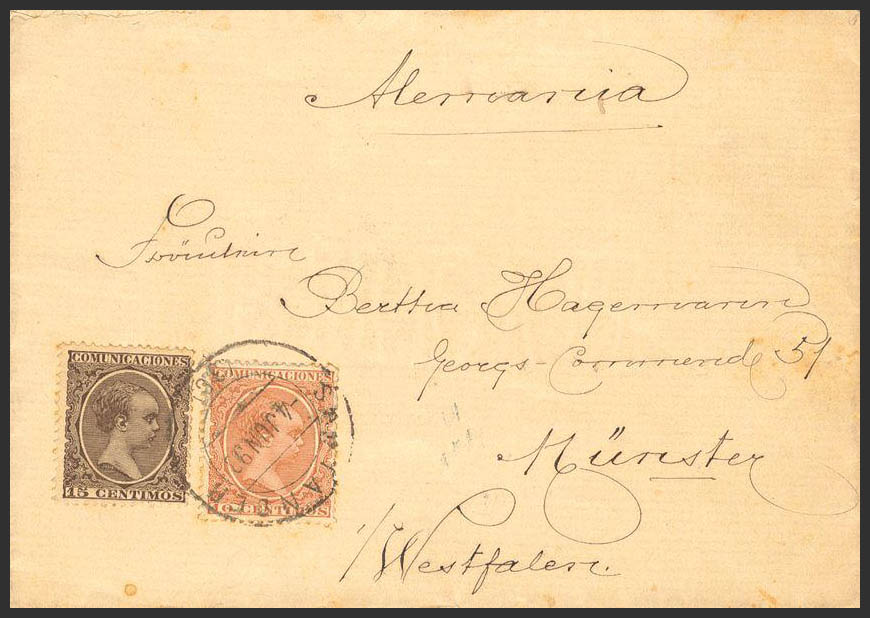 Alemania
Fräulein
Bertha Hagemann
Georgs-Commende 51
Münster
i/Westfalen.
COMUNICACIONES
15 CENTIMOS
COMUNICACIONES
10 CENTIMOS
SANTANDER
4 JUN 97